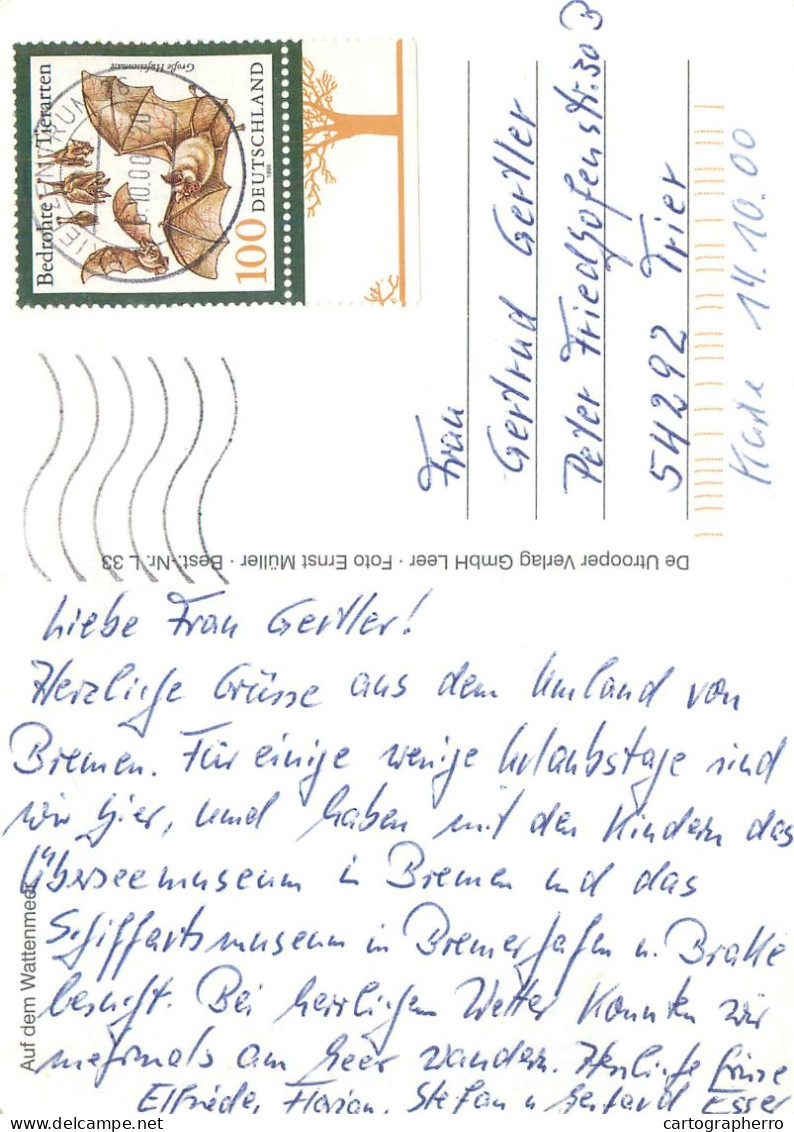 Bedrohte Tierarten
Große Hufeisennase
100 DEUTSCHLAND
1999
BRIEFZENTRUM
.10.00
Frau
Gertrud Gertler
Peter Friedhofenstr. 30 B
54292 Trier
Karte 14.10.00
De Utrooper Verlag GmbH Leer · Foto Ernst Müller · Best.-Nr. L 33
Auf dem Wattenmeer
Liebe Frau Gertler!
Herzliche Grüsse aus dem Umland von
Bremen. Für einige wenige Urlaubstage sind
wir hier, und haben mit den Kindern das
Überseemuseum in Bremen und das
Schiffartsmuseum in Bremerhafen u. Brake
besucht. Bei herrlichem Wetter konnten wir
mehrmals am Meer wandern. Herzliche Grüsse
Elfriede, Florian, Stefan u Gerhard Esser
cartographerro